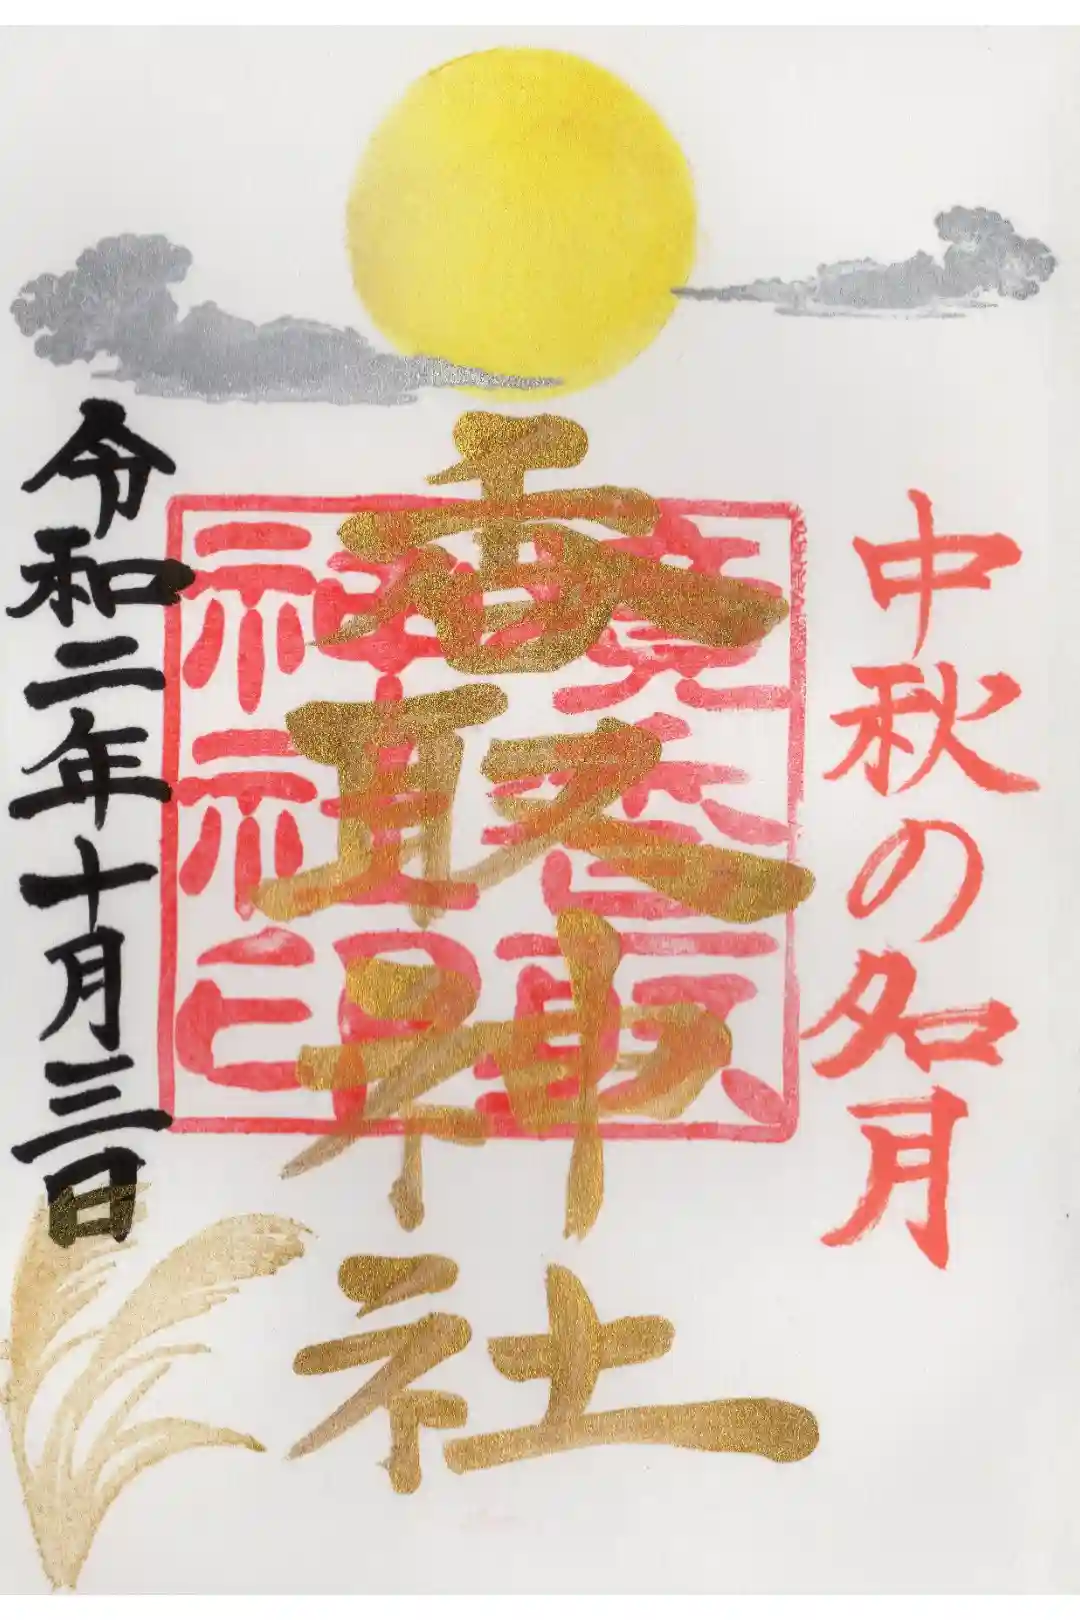 中秋の名月
香取神社
令和二年十月三日
香取
神社印